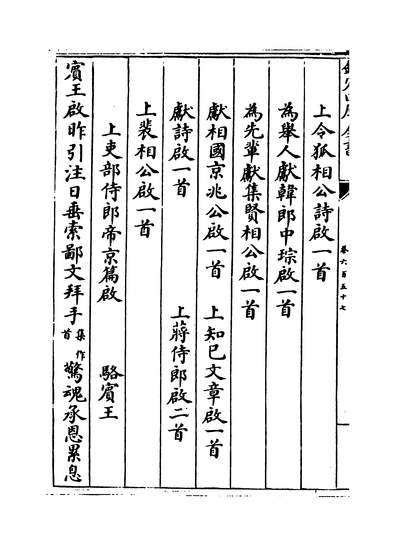 欽定四庫全書
卷六百五十七
上令狐相公詩啟一首
為舉人獻韓郎中琮啟一首
為先輩獻集賢相公啟一首
獻相國京兆公啟一首 上知己文章啟一首
獻詩啟一首 上蔣侍郎啟二首
上裴相公啟一首
上吏部侍郎帝京篇啟 駱賓王
賓王啟昨引注日垂索鄙文拜手集作首驚魂承恩累息